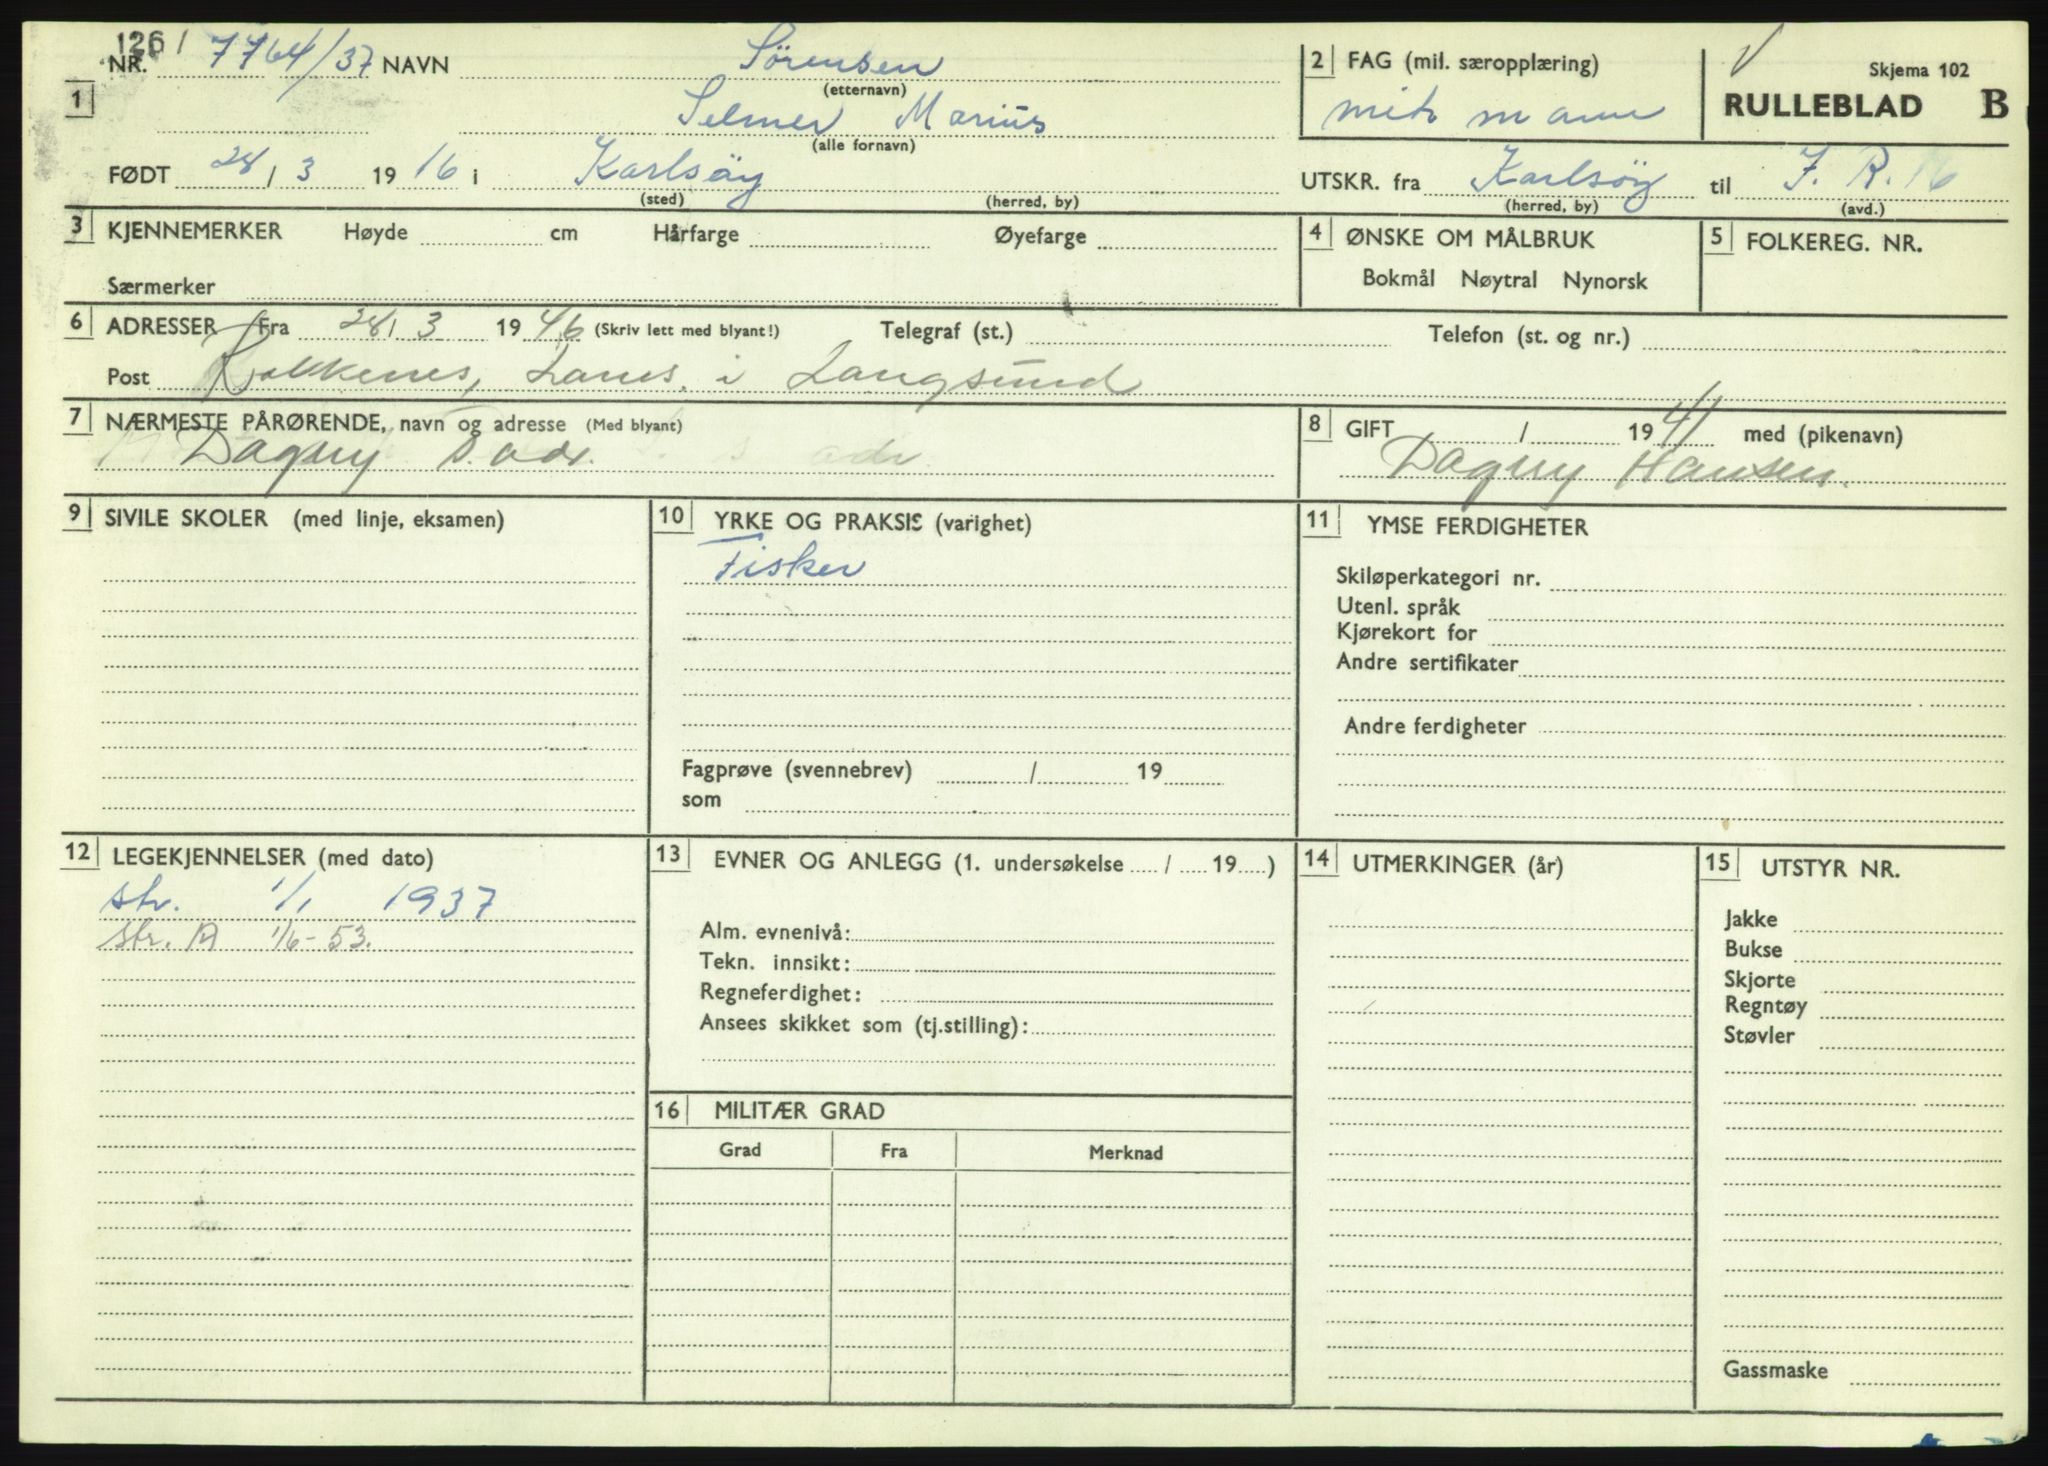 1261
NR. 7764/37 NAVN Sörensen
(etternavn)
2 FAG (mil. særopplæring)
Skjema 102
1
Selmer Marius
(alle fornavn)
mitr mann
RULLEBLAD B
FØDT 28/3 1916 i Karlsöy
(sted) (herred, by)
UTSKR. fra Karlsöy til J. R. 16
(herred, by) (avd.)
3 KJENNEMERKER Høyde cm Hårfarge Øyefarge
Særmerker
4 ØNSKE OM MÅLBRUK
Bokmål Nøytral Nynorsk
5 FOLKEREG. NR.
6 ADRESSER Fra 28/3 1946 (Skriv lett med blyant!) Telegraf (st.) Telefon (st. og nr.)
Post i Langsund
7 NÆRMESTE PÅRØRENDE, navn og adresse (Med blyant)
Dagny s. adr.
8 GIFT 4/1 1941 med (pikenavn)
Dagny Hansen.
9 SIVILE SKOLER (med linje, eksamen)
10 YRKE OG PRAKSIS (varighet)
Fisker
Fagprøve (svennebrev) / 19
som
11 YMSE FERDIGHETER
Skiløperkategori nr.
Utenl. språk
Kjørekort for
Andre sertifikater
Andre ferdigheter
12 LEGEKJENNELSER (med dato)
str. 1/1 1937
str. A 1/6-53.
13 EVNER OG ANLEGG (1. undersøkelse / 19 )
Alm. evnenivå:
Tekn. innsikt:
Regneferdighet:
Ansees skikket som (tj.stilling):
14 UTMERKINGER (år)
15 UTSTYR NR.
Jakke
Bukse
Skjorte
Regntøy
Støvler
Gassmaske
16 MILITÆR GRAD
Grad Fra Merknad